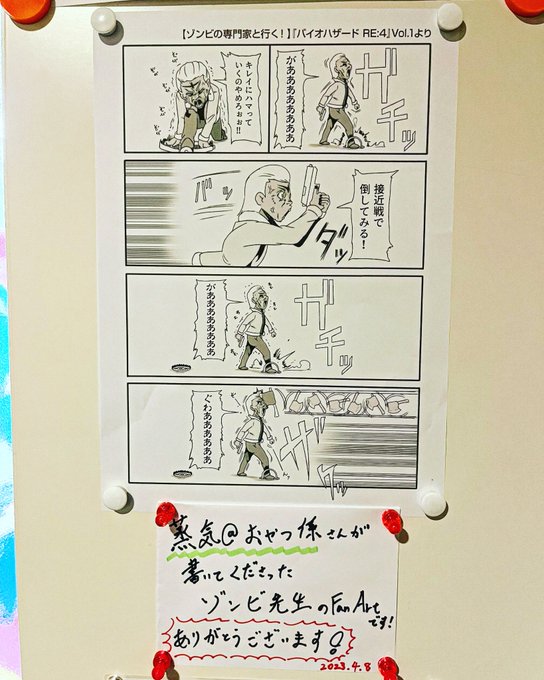 【ゾンビの専門家と行く！】『バイオハザード RE:4』Vol.1より
ガチッ
がああああああああ
キレイにハマって
いくのやめろぉぉ!!
接近戦で
倒してみる！
ダッ
バッ
ガチッ
がああああああああ
ザクッ
ぐわああああああ
蒸気@おやつ係さんが
書いてくださった
ゾンビ先生のFan Art
です!
ありがとうございます!
2023.4.8